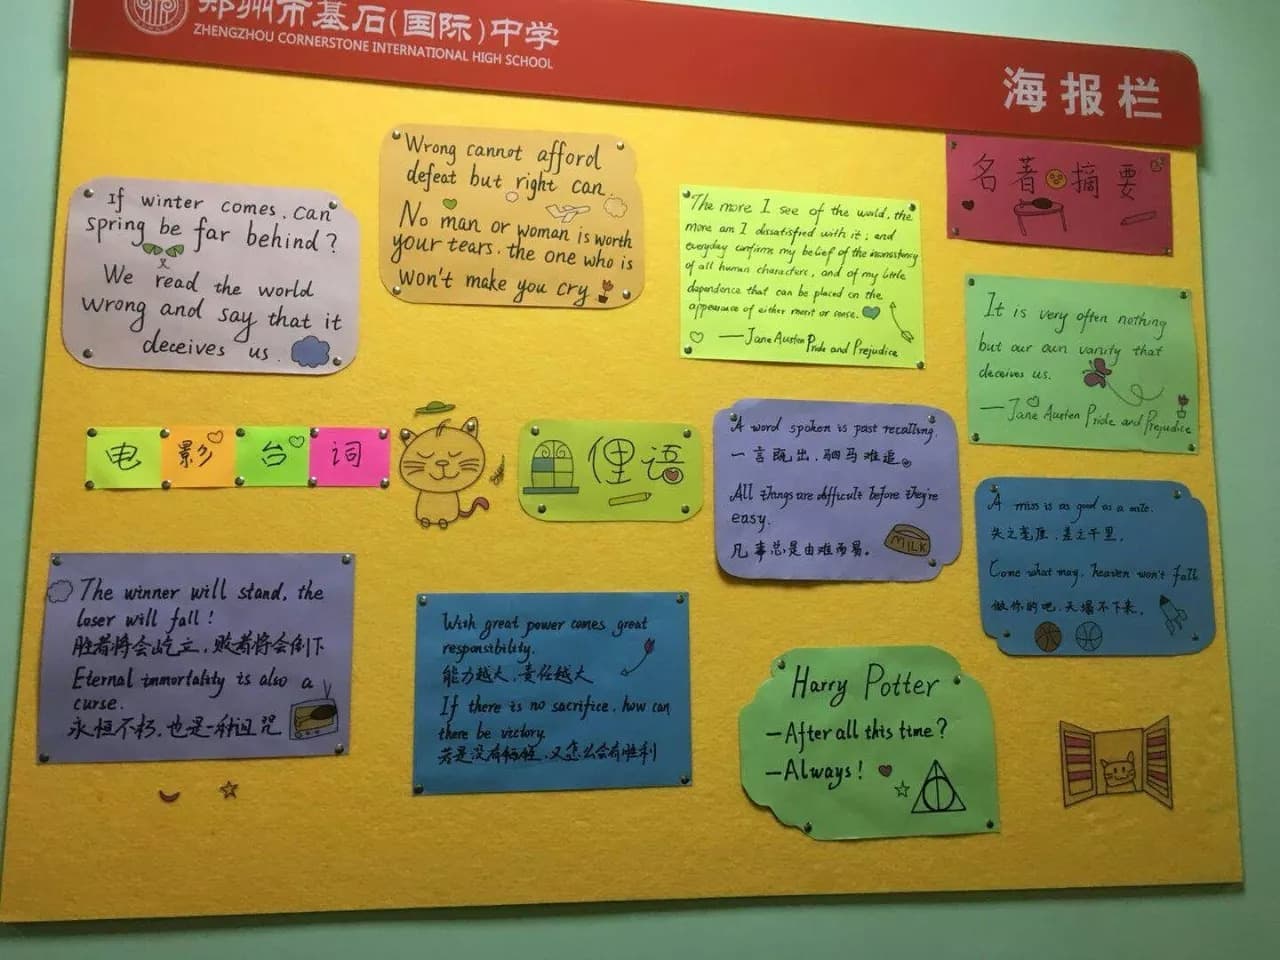 郑州市基石(国际)中学
ZHENGZHOU CORNERSTONE INTERNATIONAL HIGH SCHOOL
海报栏
If winter comes, can
spring be far behind?
We read the world
wrong and say that it
deceives us.
Wrong cannot afford
defeat but right can.
No man or woman is worth
your tears, the one who is
won't make you cry
The more I see of the world, the
more am I dissatisfied with it; and
everyday confirms my belief of the inconsistency
of all human characters, and of my little
dependence that can be placed on the
appearance of either merit or sense.
—Jane Austen Pride and Prejudice
名著摘要
It is very often nothing
but our own vanity that
deceives us.
—Jane Austen Pride and Prejudice
电影台词
俚语
A word spoken is past recalling.
一言既出,驷马难追。
All things are difficult before they're
easy.
凡事总是由难而易。
A miss is as good as a mile.
失之毫厘,差之千里。
Come what may, heaven won't fall.
做你的吧,天塌不下来。
The winner will stand, the
loser will fall!
胜者将会屹立,败者将会倒下
Eternal immortality is also a
curse.
永恒不朽,也是一种诅咒
With great power comes great
responsibility.
能力越大,责任越大
If there is no sacrifice, how can
there be victory.
若是没有牺牲,又怎么会有胜利
Harry Potter
—After all this time?
—Always!
MILK